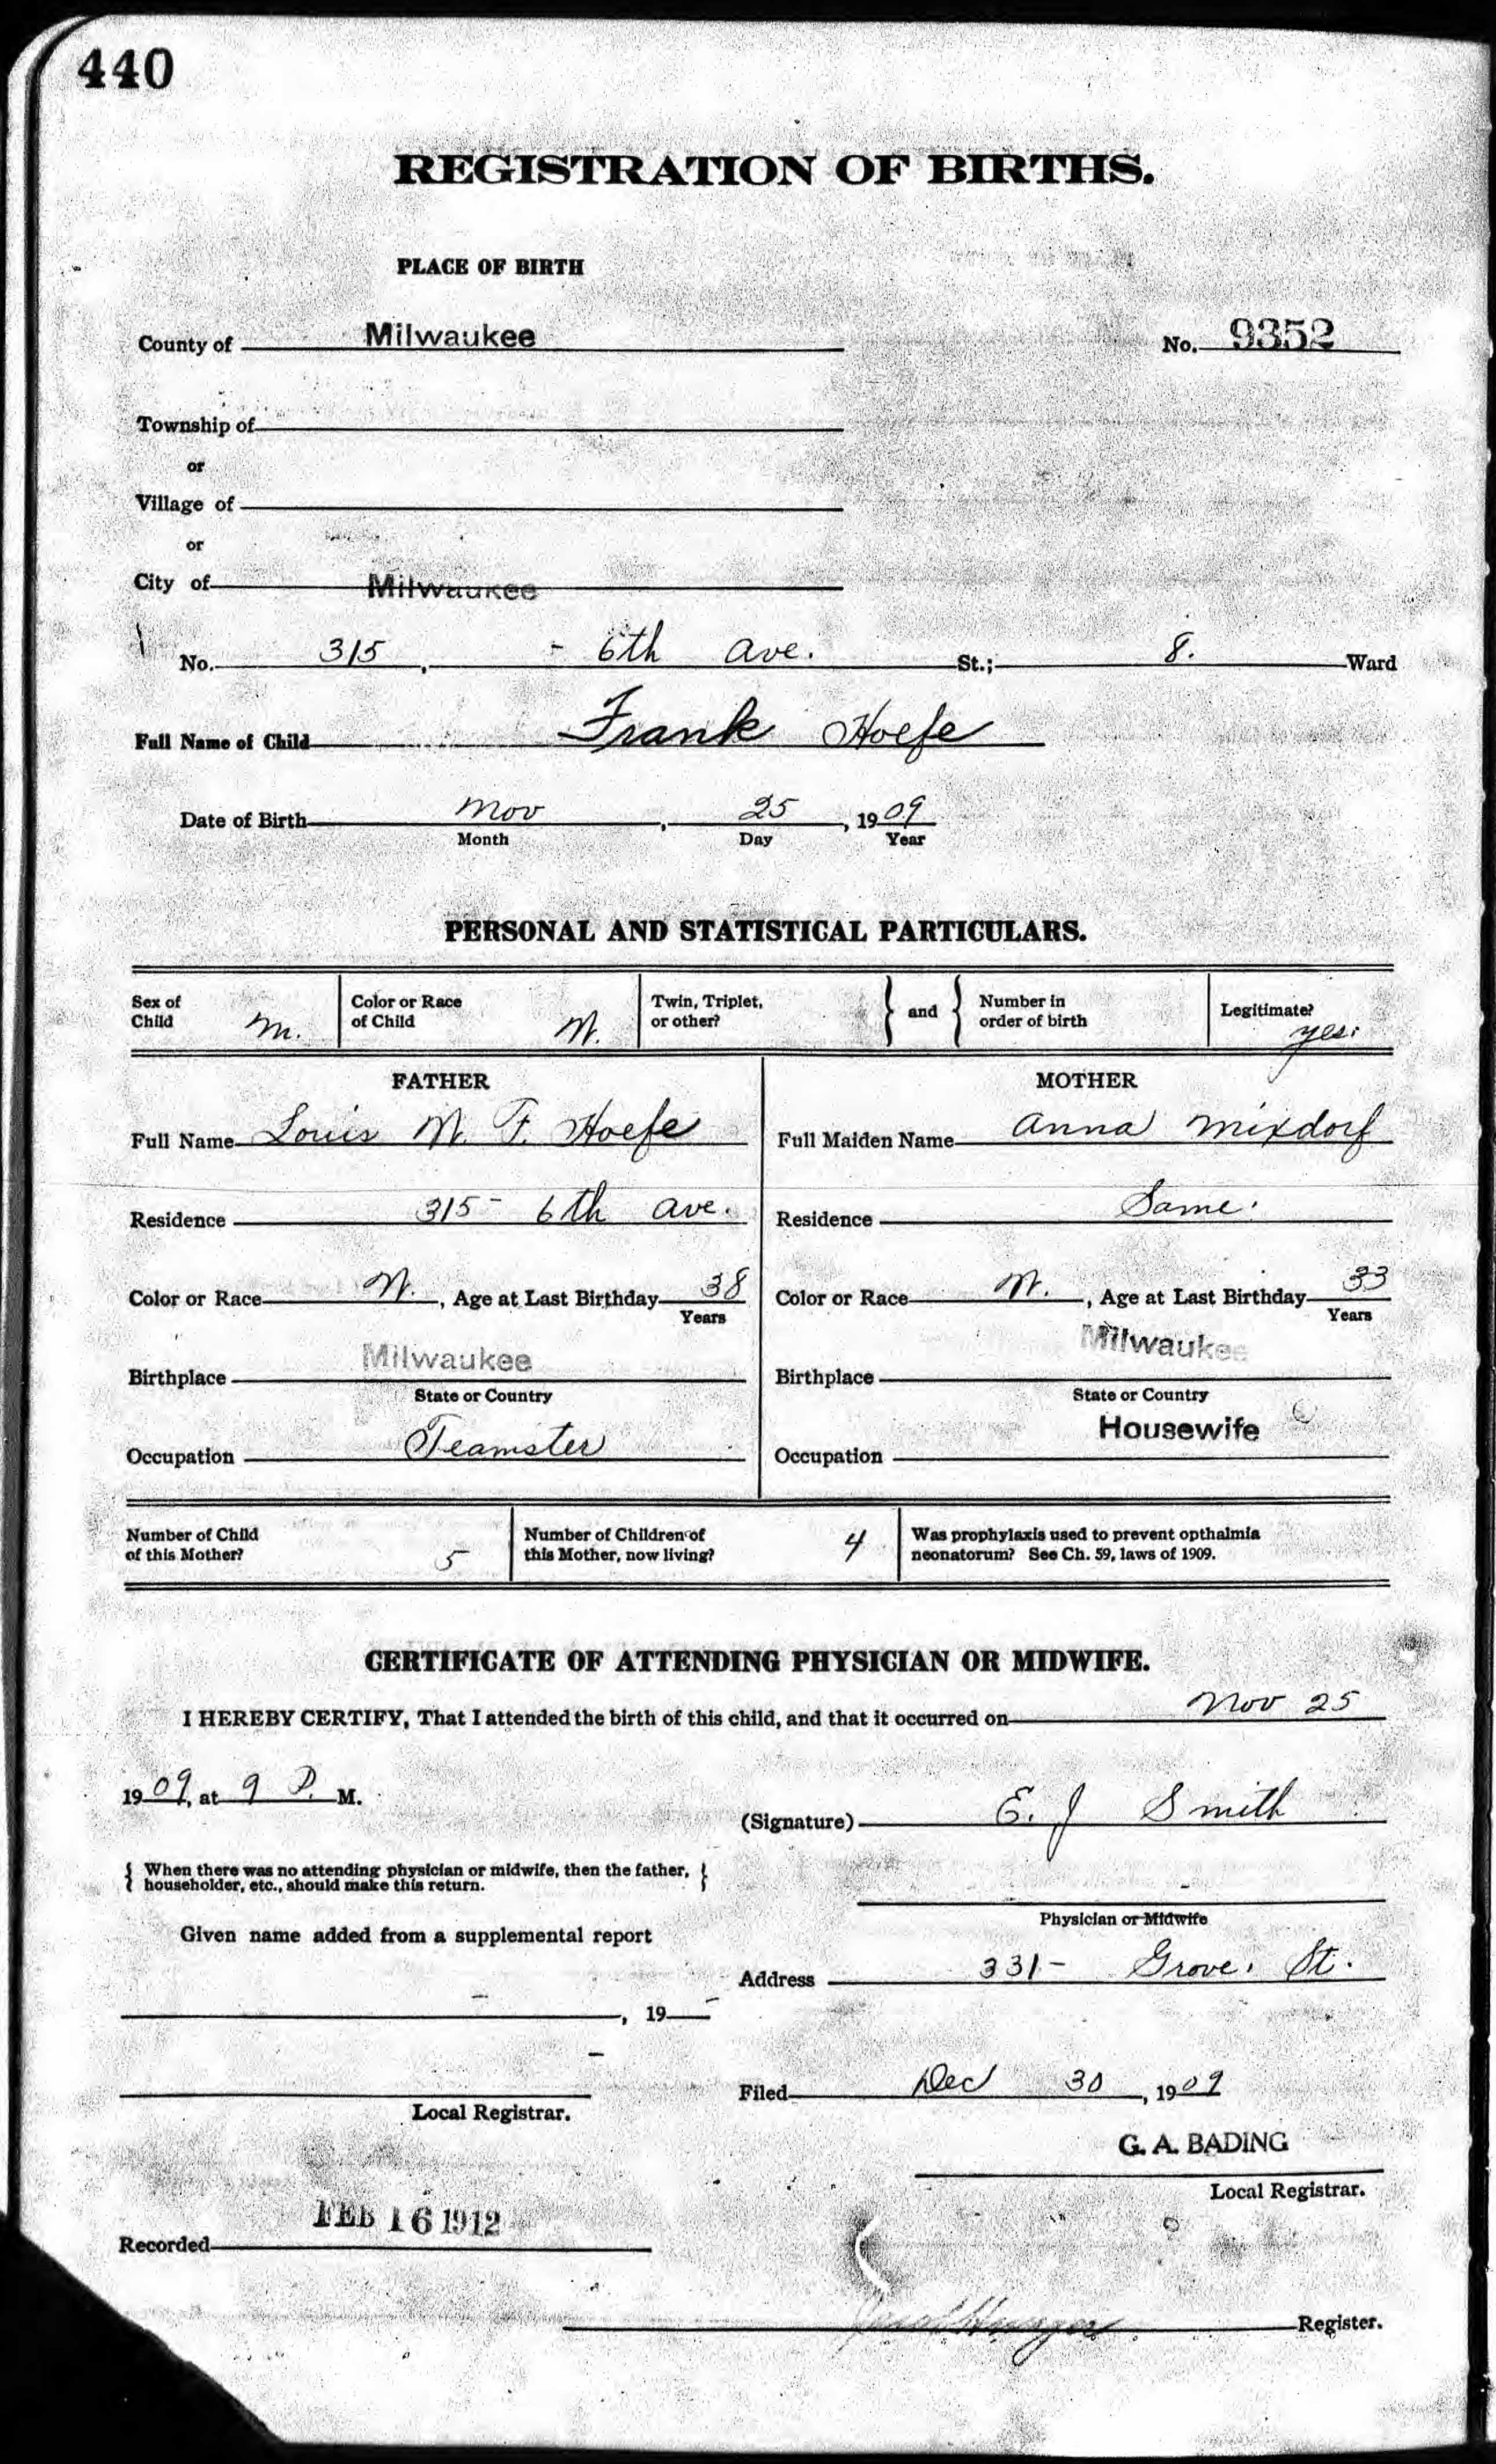 440
REGISTRATION OF BIRTHS.
PLACE OF BIRTH
County of Milwaukee No. 9352
Township of
or
Village of
or
City of Milwaukee
No. 315, - 6th Ave. St.; 8. Ward
Full Name of Child Frank Hoefe
Date of Birth Nov, 25, 1909
Month Day Year
PERSONAL AND STATISTICAL PARTICULARS.
Sex of Child M. Color or Race of Child W. Twin, Triplet, or other? } and { Number in order of birth Legitimate? yes.
FATHER MOTHER
Full Name Louis W. F. Hoefe Full Maiden Name Anna Mixdorf
Residence 315- 6th Ave. Residence Same.
Color or Race W., Age at Last Birthday 38 Color or Race W., Age at Last Birthday 33
Years Years
Birthplace Milwaukee Birthplace Milwaukee
State or Country State or Country
Occupation Teamster Occupation Housewife
Number of Child of this Mother? 5 Number of Children of this Mother, now living? 4 Was prophylaxis used to prevent opthalmia neonatorum? See Ch. 59, laws of 1909.
CERTIFICATE OF ATTENDING PHYSICIAN OR MIDWIFE.
I HEREBY CERTIFY, That I attended the birth of this child, and that it occurred on Nov 25
1909, at 9 P. M.
(Signature) E. J Smith
{ When there was no attending physician or midwife, then the father, householder, etc., should make this return. }
Physician or Midwife
Given name added from a supplemental report
Address 331- Grove. St.
, 19
Filed Dec 30, 1909
Local Registrar.
G. A. BADING
Local Registrar.
Recorded FEB 16 1912
Register.